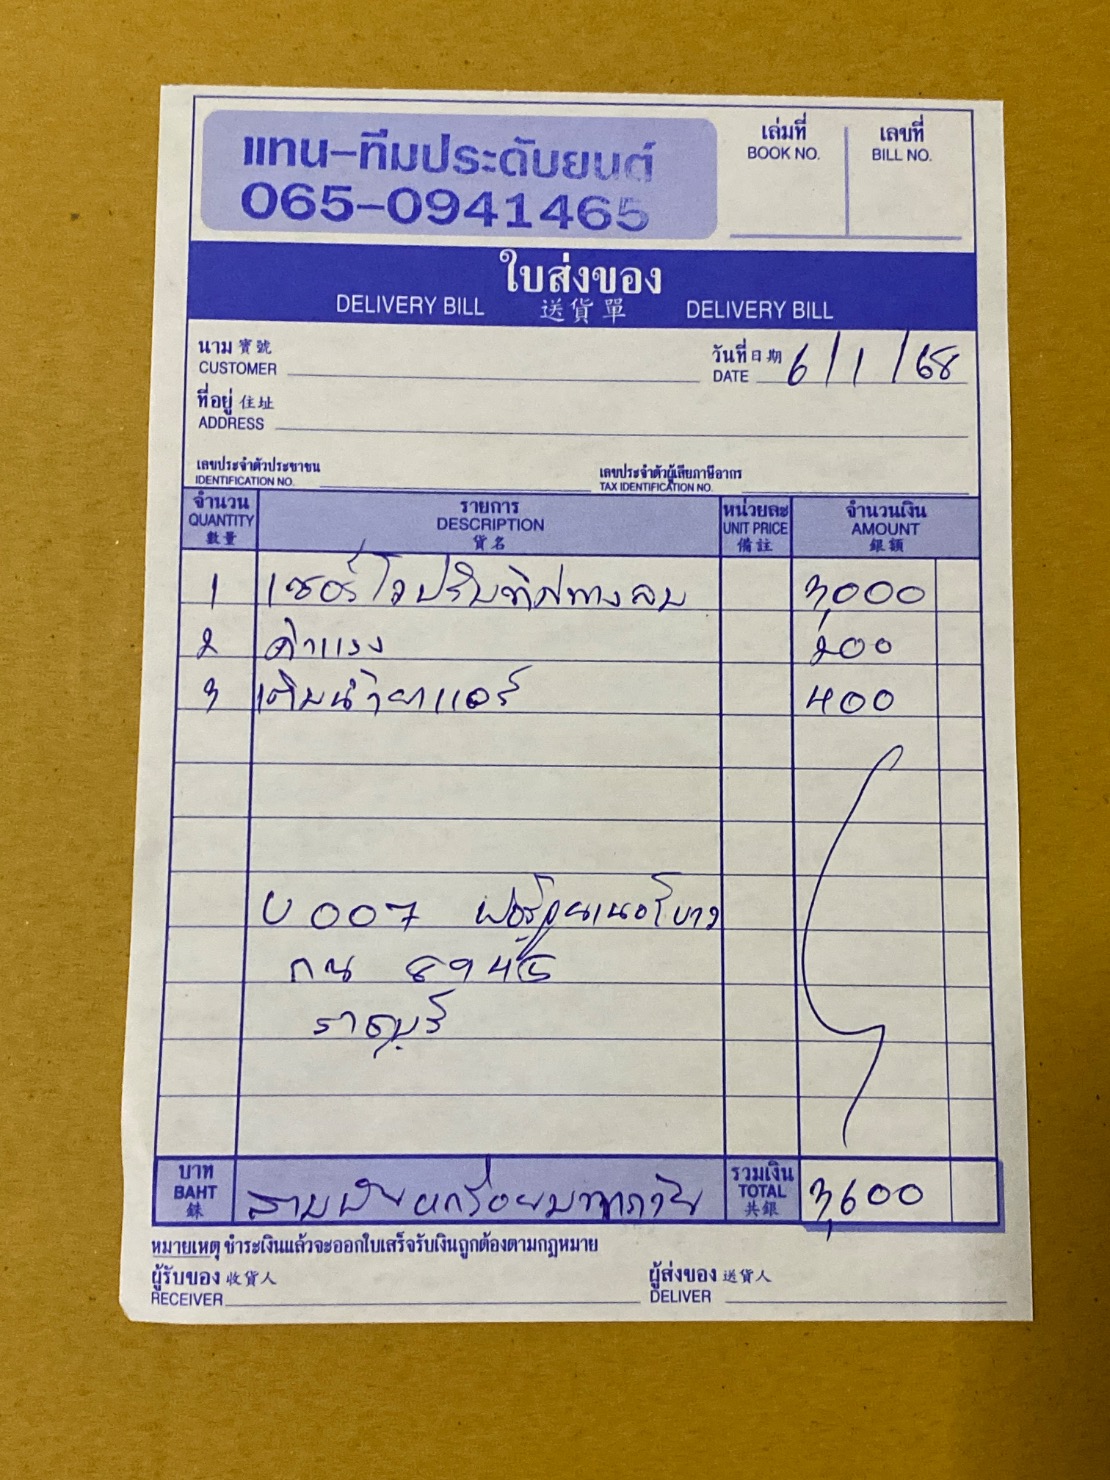 แทน-ทีมประดับยนต์
065-0941465
เล่มที่
BOOK NO.
เลขที่
BILL NO.
ใบส่งของ
DELIVERY BILL 送貨單 DELIVERY BILL
นาม 寶號
CUSTOMER
วันที่ 日期
DATE 6/1/68
ที่อยู่ 住址
ADDRESS
เลขประจำตัวประชาชน
IDENTIFICATION NO.
เลขประจำตัวผู้เสียภาษีอากร
TAX IDENTIFICATION NO.
จำนวน รายการ หน่วยละ จำนวนเงิน
QUANTITY DESCRIPTION UNIT PRICE AMOUNT
數量 貨名 備註 銀額
1 เซอร์โวปรับทิศทางลม 3,000
2 ค่าแรง 200
3 เติมน้ำยาแอร์ 400
U 007 ฟอร์จูนเนอร์
กน 8945
ราชบุรี
บาท
BAHT
銖
สามพันหกร้อยบาท
รวมเงิน
TOTAL
共銀
3,600
หมายเหตุ ชำระเงินแล้วจะออกใบเสร็จรับเงินถูกต้องตามกฎหมาย
ผู้รับของ 收貨人
RECEIVER
ผู้ส่งของ 送貨人
DELIVER